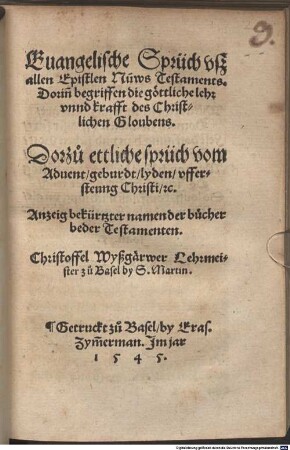 9.
Euangelische Sprüch vß
allen Epistlen Nüws Testaments.
Dorin̄ begriffen die göttliche lehr
vnnd krafft des Christ⸗
lichen Gloubens.
Dorzů ettliche sprüch vom
Aduent/geburdt/lyden/vffer⸗
steung Christi/ꝛc.
Anzeig bekürtzter namen der bücher
beder Testamenten.
Christoffel Wyßgärwer Lehrmei⸗
ster zů Basel by S. Martin.
¶Getruckt zů Basel/by Eras.
Zym̄erman. Im jar
1 5 4 5.